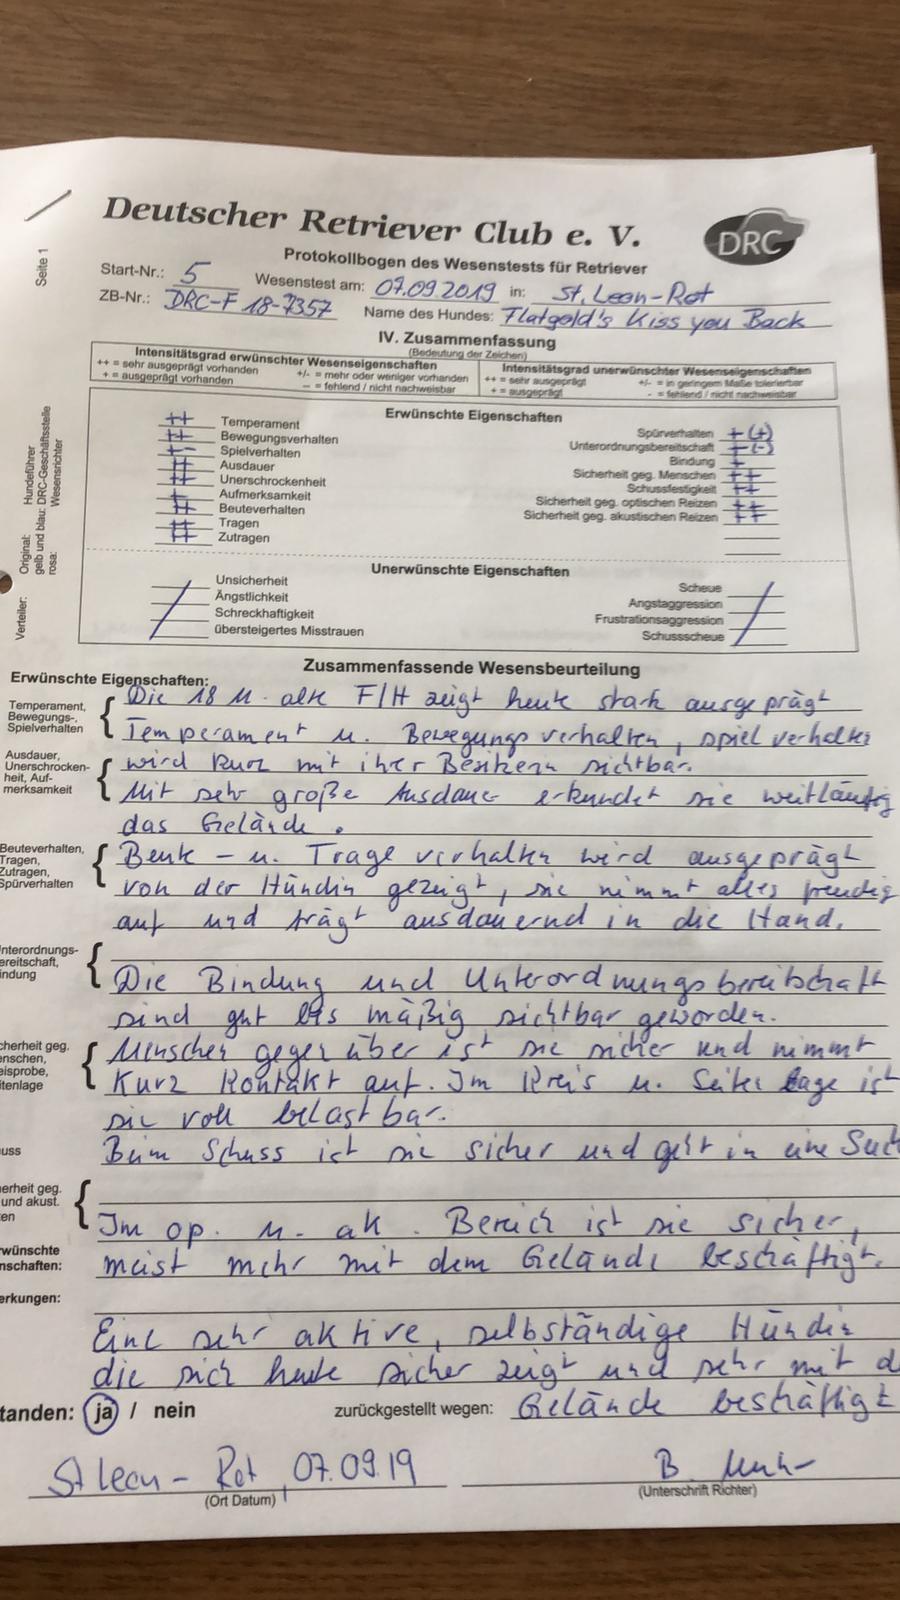 Deutscher Retriever Club e. V.
DRC
Protokollbogen des Wesenstests für Retriever
Seite 1
Start-Nr.: 5 Wesenstest am: 07.09.2019 in: St. Leon-Rot
ZB-Nr.: DRC-F 18-7357 Name des Hundes: Flatgold's Kiss you Back
IV. Zusammenfassung
(Bedeutung der Zeichen)
Intensitätsgrad erwünschter Wesenseigenschaften
++ = sehr ausgeprägt vorhanden +/- = mehr oder weniger vorhanden
+ = ausgeprägt vorhanden – = fehlend / nicht nachweisbar
Intensitätsgrad unerwünschter Wesenseigenschaften
++ = sehr ausgeprägt +/- = in geringem Maße tolerierbar
+ = ausgeprägt - = fehlend / nicht nachweisbar
Verteiler: Original: Hundeführer
gelb und blau: DRC-Geschäftsstelle
rosa: Wesensrichter
Erwünschte Eigenschaften
++ Temperament
++ Bewegungsverhalten
+- Spielverhalten
++ Ausdauer
++ Unerschrockenheit
+ Aufmerksamkeit
++ Beuteverhalten
++ Tragen
++ Zutragen
Spürverhalten +(+)
Unterordnungsbereitschaft +(-)
Bindung +
Sicherheit geg. Menschen ++
Schussfestigkeit ++
Sicherheit geg. optischen Reizen ++
Sicherheit geg. akustischen Reizen ++
Unerwünschte Eigenschaften
Unsicherheit
Ängstlichkeit
Schreckhaftigkeit
übersteigertes Misstrauen
Scheue
Angstaggression
Frustrationsaggression
Schussscheue
Zusammenfassende Wesensbeurteilung
Erwünschte Eigenschaften:
Temperament,
Bewegungs-,
Spielverhalten
Die 18 M. alte F/H zeigt heute stark ausgeprägt
Temperament u. Bewegungsverhalten, spielverhalten
wird kurz mit ihrer Besitzerin sichtbar.
Ausdauer,
Unerschrocken-
heit, Auf-
merksamkeit
Mit sehr große Ausdauer erkundet sie weitläufig
das Gelände.
Beuteverhalten,
Tragen,
Zutragen,
Spürverhalten
Beute - u. Trageverhalten wird ausgeprägt
von der Hündin gezeigt, sie nimmt alles freudig
auf und trägt ausdauernd in die Hand.
nterordnungs-
ereitschaft,
indung
Die Bindung und Unterordnungsbereitschaft
sind gut bis mäßig sichtbar geworden.
cherheit geg.
enschen,
eisprobe,
itenlage
Menschen gegenüber ist sie sicher und nimmt
Kurz Kontakt auf. Im Kreis u. Seitenlage ist
sie voll belastbar.
uss
Beim Schuss ist sie sicher und geht in eine Such
erheit geg.
und akust.
en
Im op. u. ak. Bereich ist sie sicher,
meist mehr mit dem Gelände beschäftigt.
rwünschte
nschaften:
erkungen:
Eine sehr aktive, selbständige Hündin
die sich heute sicher zeigt und sehr mit d
Gelände beschäftigt
tanden: ja / nein zurückgestellt wegen:
St Leon - Rot, 07.09.19
(Ort Datum)
B.
(Unterschrift Richter)